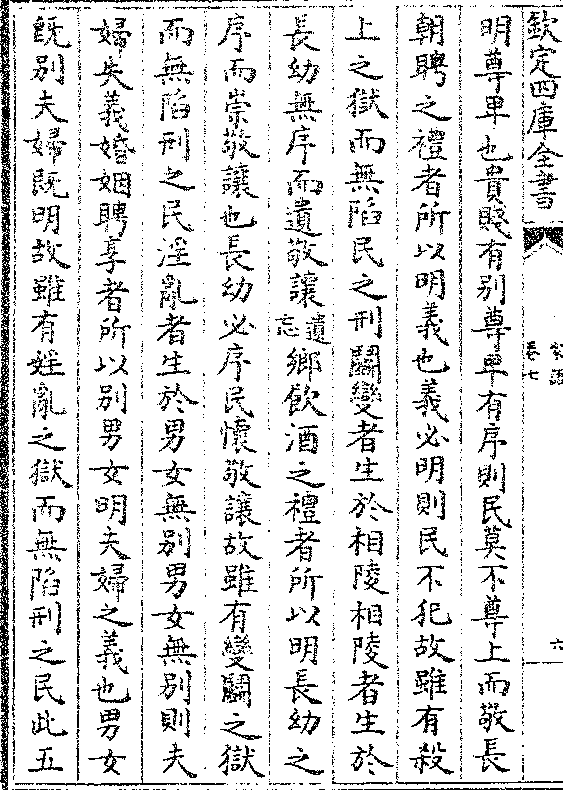 欽定四庫全書
家語
卷七
六
明尊卑也貴賤有别尊卑有序則民莫不尊上而敬長
朝聘之禮者所以明義也義必明則民不犯故雖有殺
上之獄而無陷民之刑鬭變者生於相陵相陵者生於
長幼無序而遺敬讓遺忘鄉飲酒之禮者所以明長幼之
序而崇敬讓也長幼必序民懷敬讓故雖有變鬭之獄
而無陷刑之民淫亂者生於男女無别男女無别則夫
婦失義婚姻聘享者所以别男女明夫婦之義也男女
既别夫婦既明故雖有婬亂之獄而無陷刑之民此五